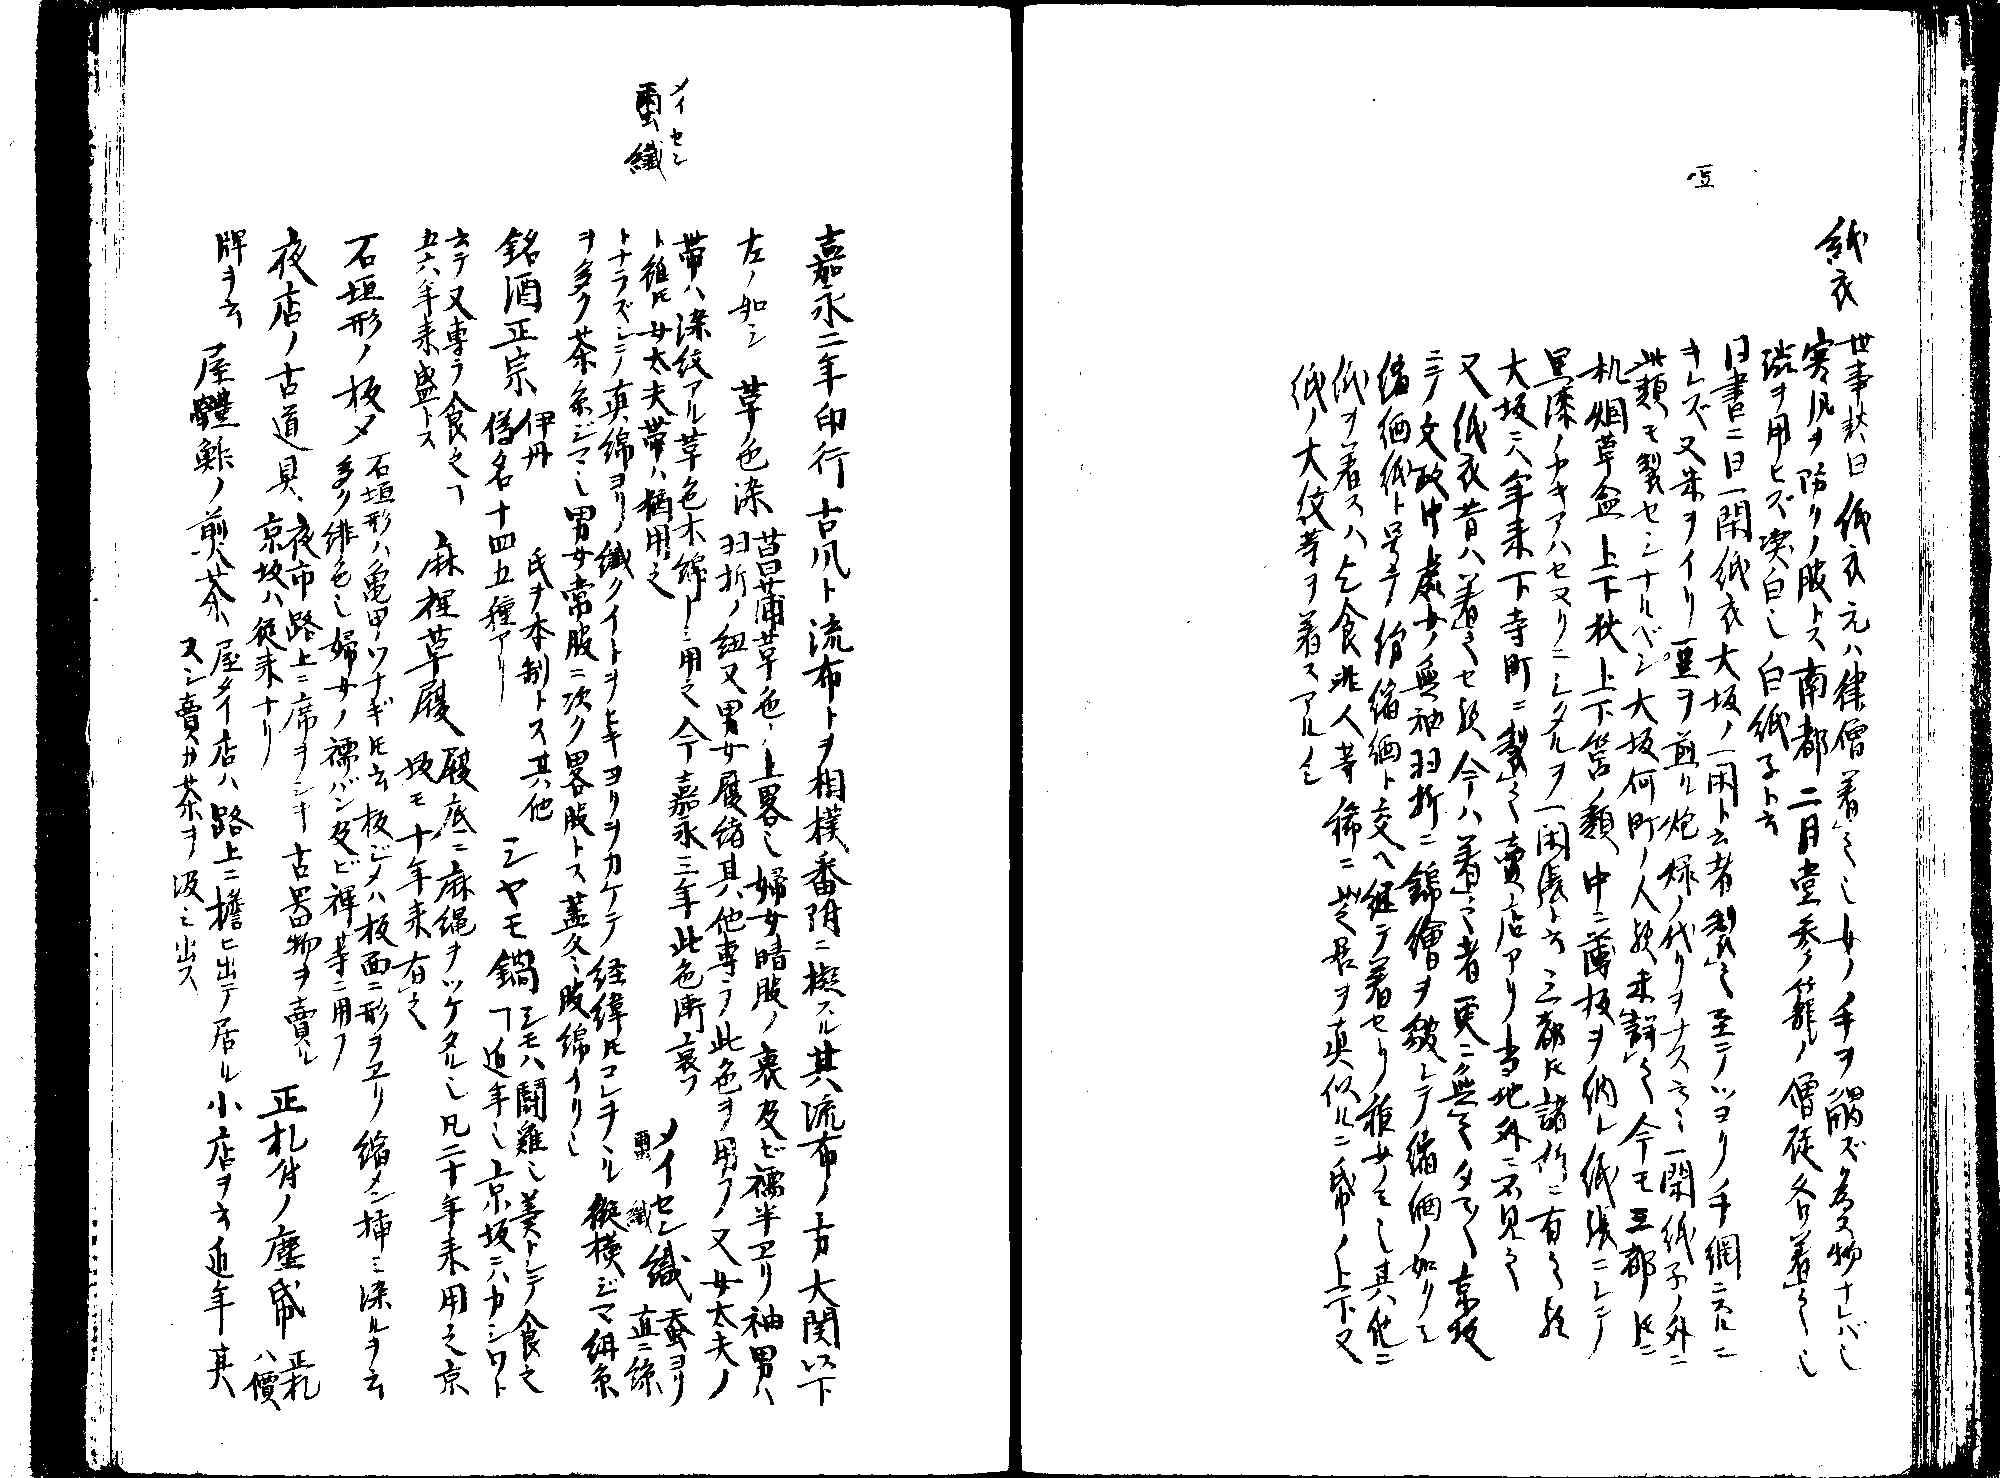 豆
紙衣
世事談ニ曰紙衣元ハ律僧着之シ女ノ手ヲ觸ズ為ス物ナレバシ
寒風ヲ防クノ服トス南都二月堂参籠ノ僧徒各着之シ
渋ヲ用ヒズ白シ白紙子ト云
同書ニ曰一閑紙衣大坂ノ一閑ト云者製之至テツヨク手綱ニスルニ
キレズ又米ヲイリ豆ヲ煎ル炮烙ノ代リヲナスト云ヘリ一閑紙子ノ外ニ
此類モ製セシナルベシ大坂何町ノ人歟未詳之今モ三都トモニ
机烟草盆上下秋上下筥ノ類中ニ薄板ヲ納レ紙張ニシテ
黒漆ノチキアハセヌリニシタルヲ一閑張ト云三都トモ諸所ニ有之歟
大坂ニ八年来下寺町ニ製之賣店アリ当地外ニ不見之
又紙衣昔ハ着之セ歟今ハ着之者更ニ無之タマタマ京坂
ニテ文政中處女ノ無袖羽折ニ錦繪ヲ皺シテ縮緬ノ如クシ
縮緬紙ト号テ紛縮緬ト交ヘ継テ着セリ稚女ノミシ其他ニ
紙ヲ着スハ乞食非人等稀ニ芝居ヲ真似ルニ帋ノ上下又
紙ノ大紋等ヲ着スアルノミ
メイセン
蠒織
嘉永二年印行古風ト流布トヲ相撲番附ニ擬スル其流布ノ方大関以下
左ノ如シ 草色染 菖蒲草色ノ上畧シ婦女晴服ノ裏及ビ襦半ヱリ袖男ハ
羽折ノ紐又男女履緒其他専ラ此色ヲ用フノ又女太夫ノ
帯ハ染紋アル草色木綿ノミ用之今嘉永三年此色漸衰フ
ト雖トモ女太夫帯ハ猶用之 メイセン織 蠒織 蚕ヨリ直ニ綿
トナラズシテ真綿ヨリ織クイトヲヒキヨリヲカケテ経緯トモコレヲシル縦横ジマ絹糸
ヲ多ク茶糸ジマシ男女常服ニ次ク畧服トス蓋冬服綿イリシ
銘酒正宗 伊丹氏ヲ本制トス其他
僞名十四五種アリ シヤモ鍋 シモハ鬪雞シ羹トシテ食之
フ近年シ上京坂ニハカシワト
云テ又専ラ食之フ
五六年来盛トス 麻裡草履 履底ニ麻縄ヲツケタルシ凡二十年来用之京
坂モ十年来有之
石垣形ノ板メ 石垣形ハ亀甲ツナギトモ云板ジメハ板面ニ形ヲヱリ縮メン挿ミ染ルヲ云
多ク緋色シ婦女ノ襦バン及ビ褌等ニ用フ
夜店ノ古道具 夜市路上ニ席ヲシキ古器物ヲ賣ル
京坂ハ従来ナリ 正札付ノ塵帋 正札ハ價
牌ヲ云 屋體鮓ノ煎茶 屋タイ店ハ路上ニ擔ヒ出テ居ル小店ヲ云近年其
スシ賣ガ茶ヲ汲ミ出ス